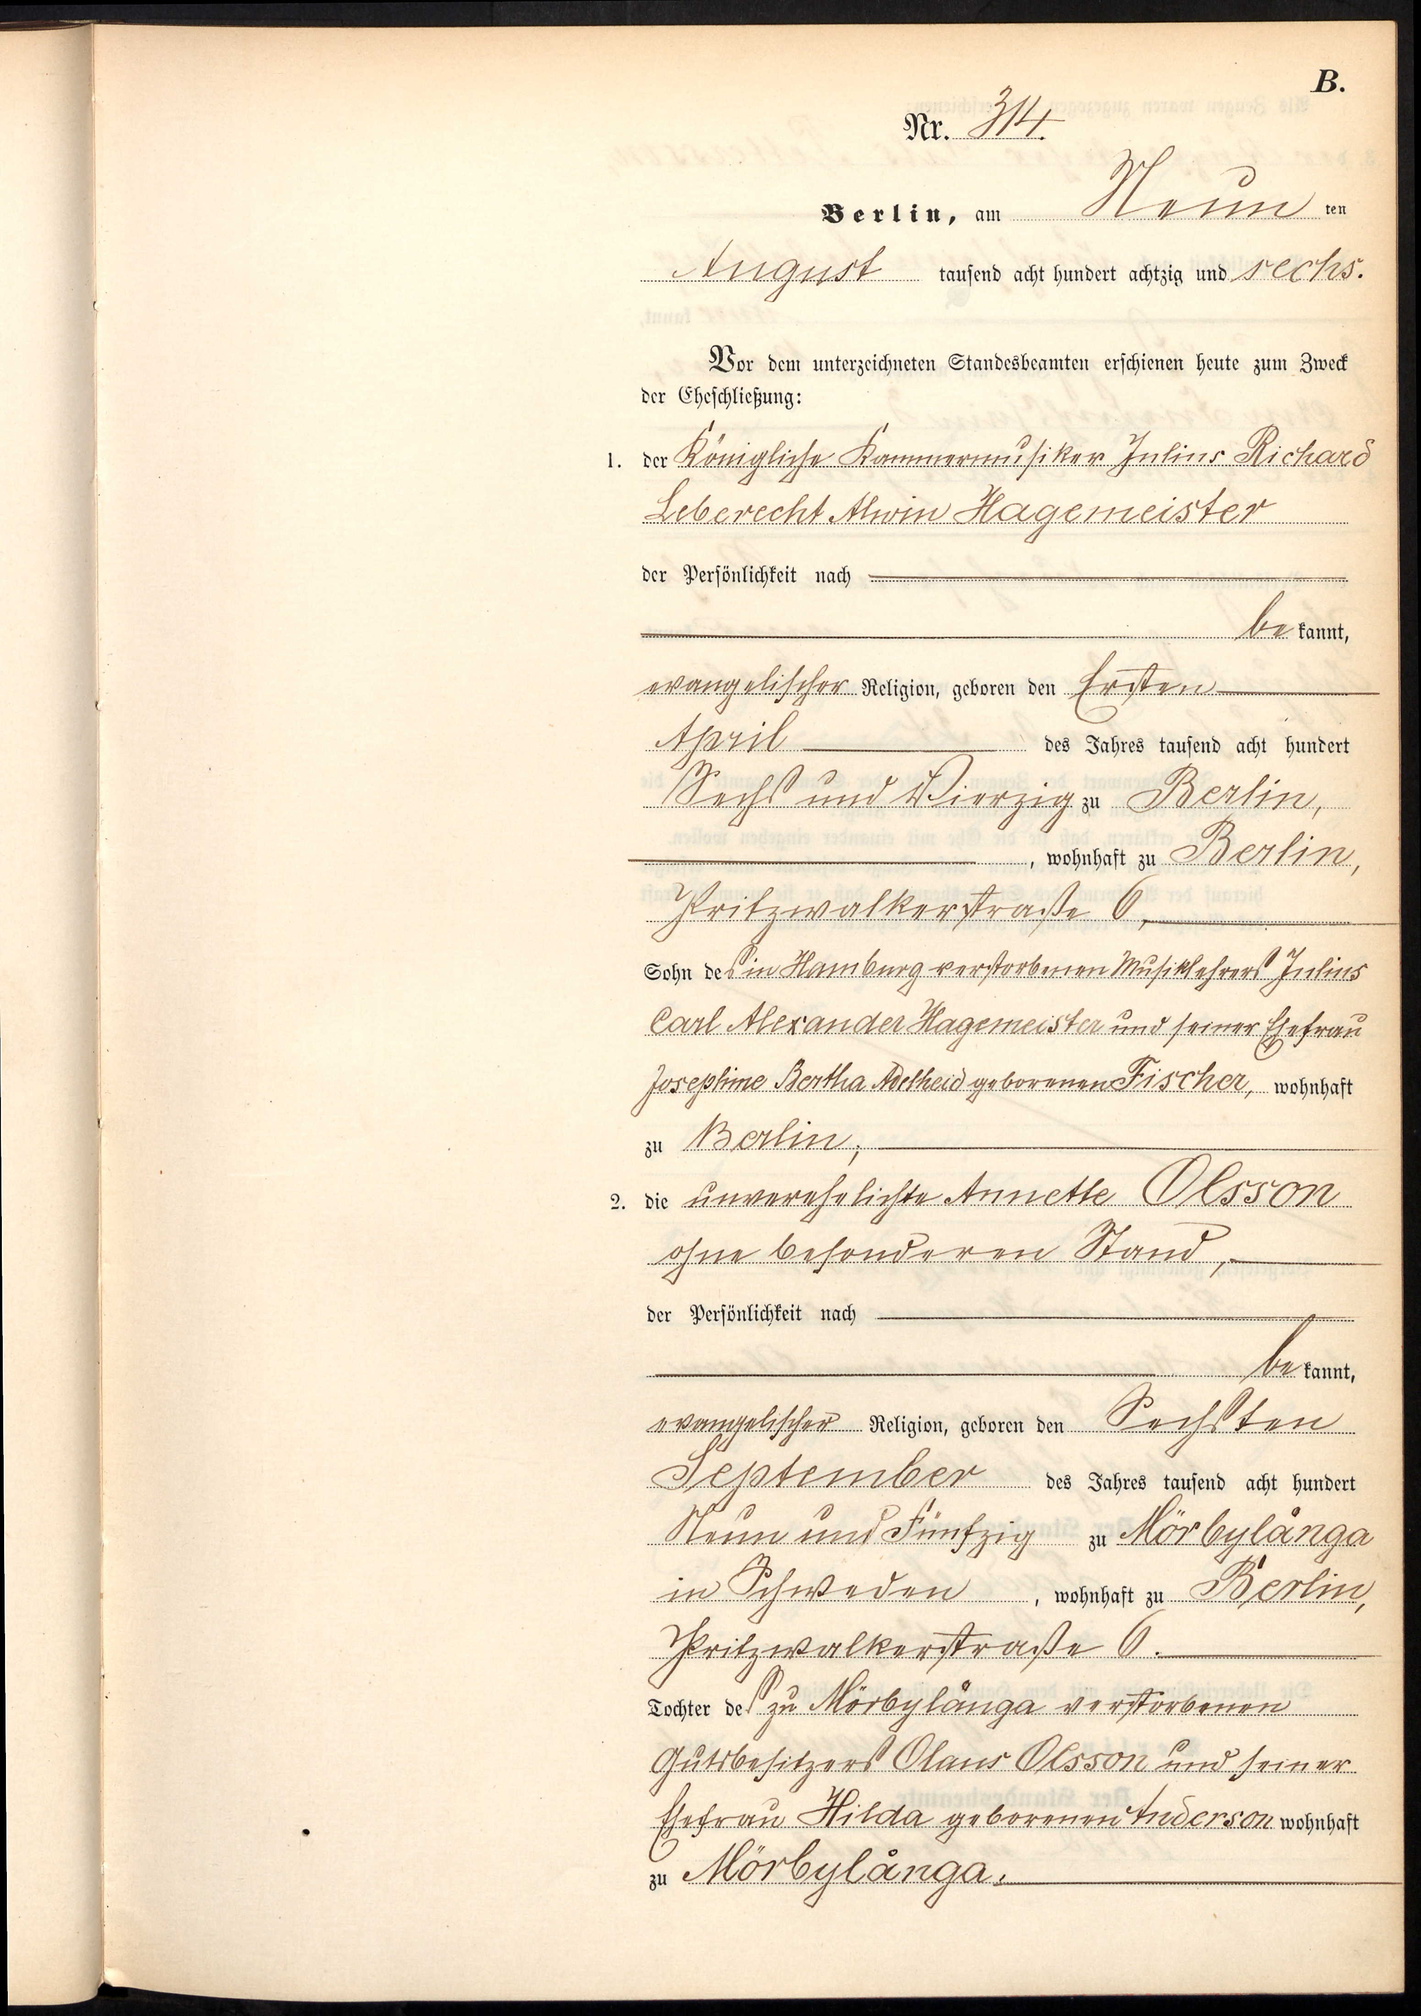 B.
Nr. 314.
Berlin, am Neun ten
August tausend acht hundert achtzig und sechs.
Vor dem unterzeichneten Standesbeamten erschienen heute zum Zweck
der Eheschließung:
1. der Königliche Kammermusiker Julius Richard
Leberecht Alwin Hagemeister
der Persönlichkeit nach
be kannt,
evangelischer Religion, geboren den Ersten
April des Jahres tausend acht hundert
Sechs und Vierzig zu Berlin,
, wohnhaft zu Berlin,
Pritzwalkerstraße 6,
Sohn des in Hamburg verstorbenen Musiklehrers Julius
Carl Alexander Hagemeister und seiner Ehefrau
Josephine Bertha Adelheid geborenen Fischer, wohnhaft
zu Berlin;
2. die unverehelichte Annette Olsson
ohne besonderen Stand,
der Persönlichkeit nach
be kannt,
evangelischer Religion, geboren den Sechsten
September des Jahres tausend acht hundert
Neun und Fünfzig zu Mörbylånga
in Schweden , wohnhaft zu Berlin,
Pritzwalkerstraße 6.
Tochter des zu Mörbylånga verstorbenen
Gutsbesitzers Olaus Olsson und seiner
Ehefrau Hilda geborenen Anderson wohnhaft
zu Mörbylånga.